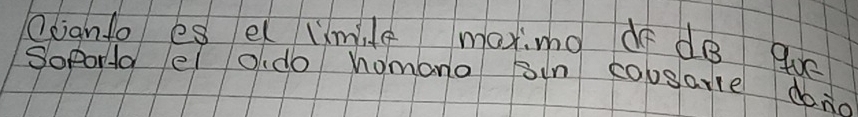 Cuanto es el limite maximo de dB que
Soporta el oido homano sin cousarle daño